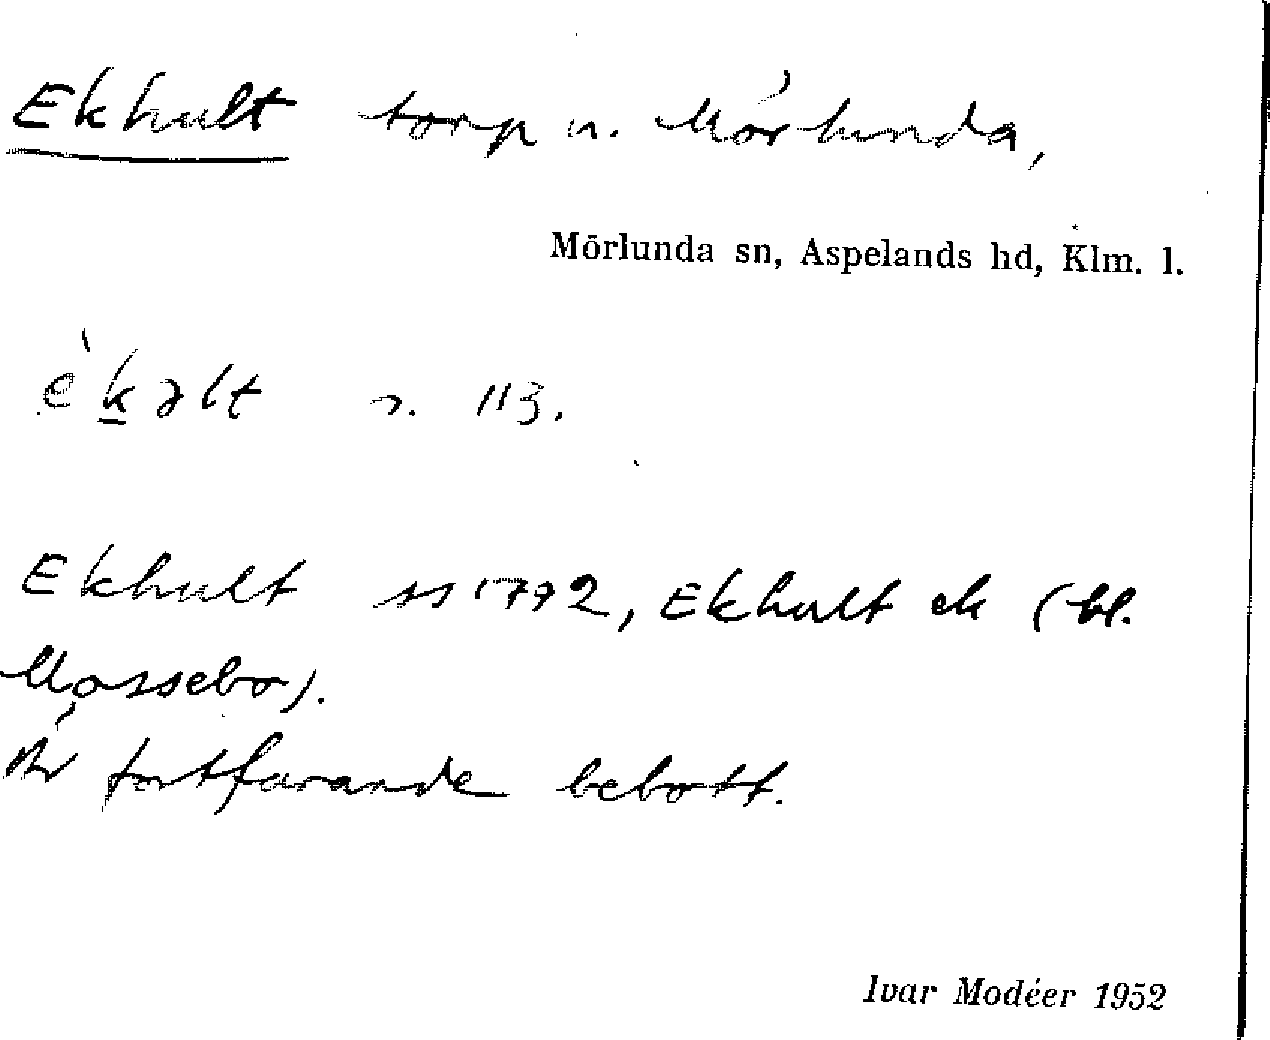 Ekhult torp u. Mörlunda,
Mörlunda sn, Aspelands hd, Klm. l.
èkəlt s. 113.
Ekhult ss 1792, Ekhult ek (bl.
Mossebo).
Är fortfarande bebott.
Ivar Modéer 1952